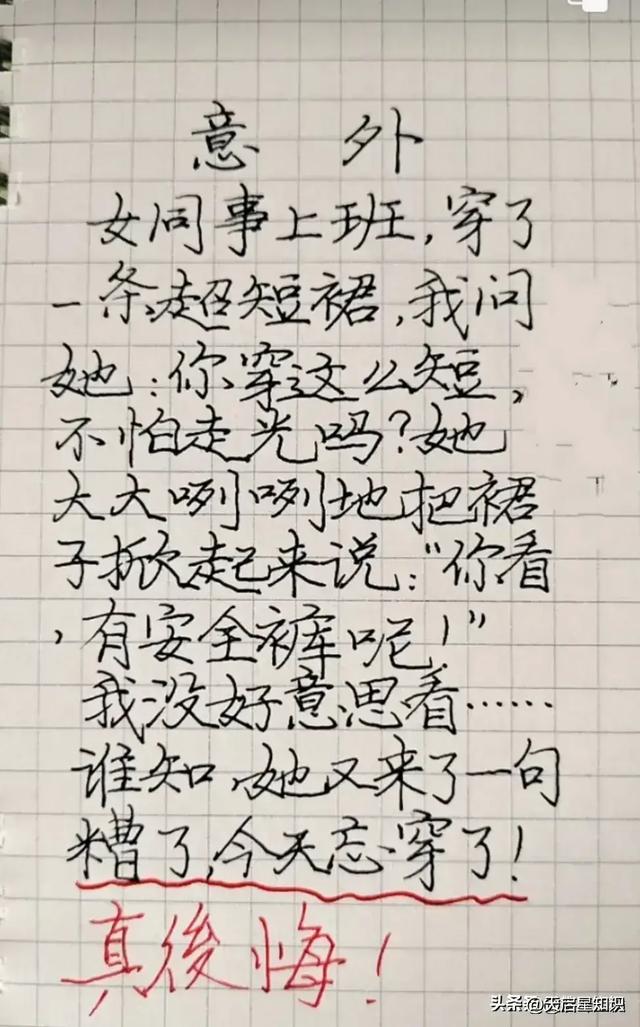 意外
女同事上班,穿了
一条超短裙,我问
她:你穿这么短,
不怕走光吗?她
大大咧咧地把裙
子掀起来说:“你看
,有安全裤呢!”
我没好意思看……
谁知,她又来了一句
糟了,今天忘穿了!
真後悔!
头条@天启星知识